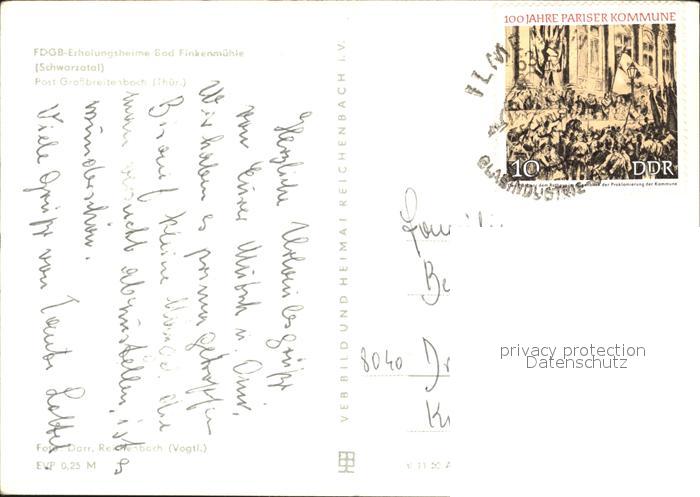 FDGB-Erholungsheime Bad Finkenmühle
(Schwarzatal)
Post Großbreitenbach (Thür.)
Herzliche Urlaubsgrüße
von Eurer Mutsch u. Omi.
Wir haben es prima getroffen
Bis auf kleine Mängel, die
man versucht abzustellen, ist es
wunderschön.
Viele Grüße von Tante Lotte
Foto: Darr, Reichenbach (Vogtl.)
EVP 0,25 M
VEB BILD UND HEIMAT REICHENBACH I. V.
100 JAHRE PARISER KOMMUNE
10 DDR
der Proklamierung der Kommune
ILME
63
GLASINDUSTRIE
8040
privacy protection
Datenschutz